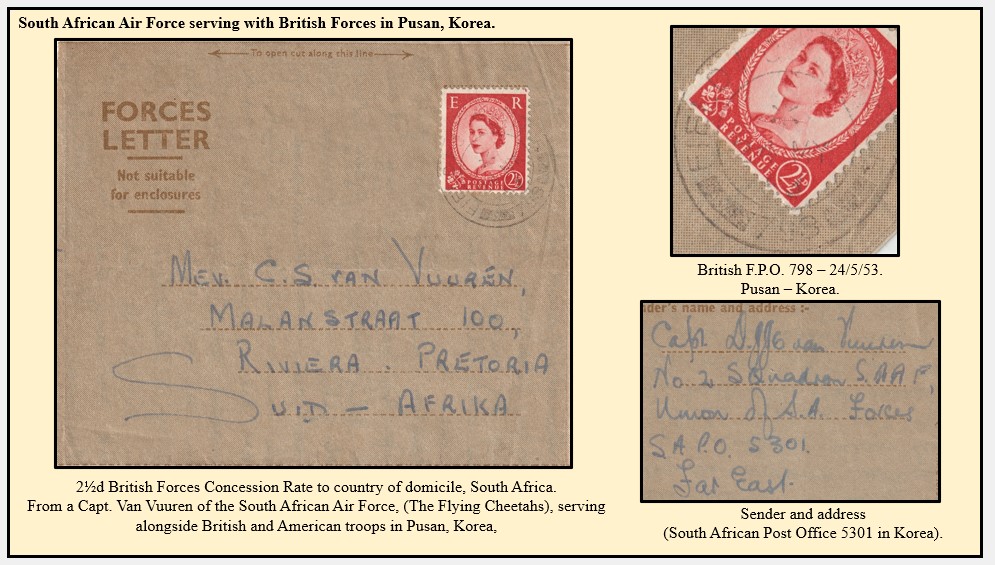 South African Air Force serving with British Forces in Pusan, Korea.
To open cut along this line
FORCES
LETTER
Not suitable
for enclosures
E R
POSTAGE
REVENUE
2½D
MEV. C.S. VAN VUUREN,
MALANSTRAAT 100,
RIVIERA. PRETORIA
SUID – AFRIKA
2½d British Forces Concession Rate to country of domicile, South Africa.
From a Capt. Van Vuuren of the South African Air Force, (The Flying Cheetahs), serving
alongside British and American troops in Pusan, Korea,
POSTAGE
REVENUE
2½D
798
British F.P.O. 798 – 24/5/53.
Pusan – Korea.
der's name and address :-
Capt van Vuuren
No. 2 Squadron S.A.A.F,
Union of S.A. Forces
S.A.P.O. 5301.
Far East.
Sender and address
(South African Post Office 5301 in Korea).